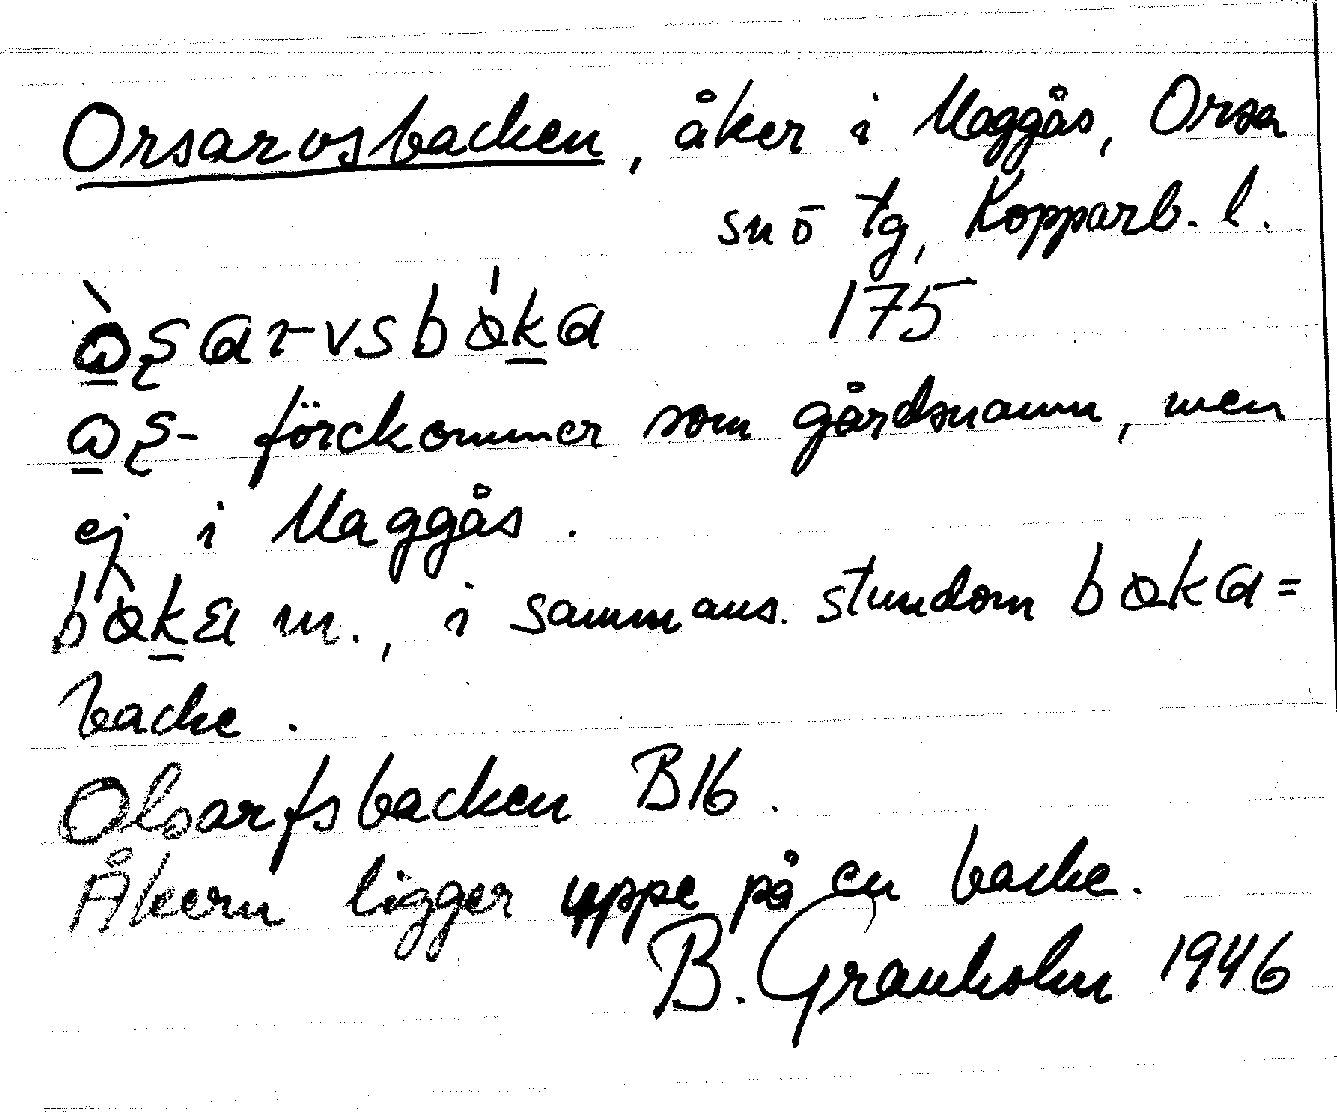 Orsarvsbacken, åker i Maggås, Orsa
snö tg, Kopparb. l.
175
förekommer som gårdsnamn, men
ej i Maggås.
m., i sammans. stundom
backe.
Olsarfsbacken B16.
Åkern ligger uppe på en backe.
B. Granholm 1946